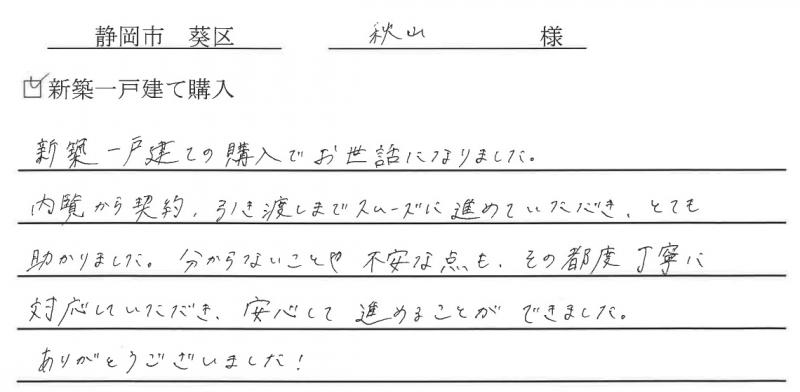 静岡市 葵区 秋山 様
☑新築一戸建て購入
新築一戸建ての購入でお世話になりました。
内覧から契約、引き渡しまでスムーズに進めていただき、とても
助かりました。分からないことや不安な点も、その都度丁寧に
対応していただき、安心して進めることができました。
ありがとうございました!